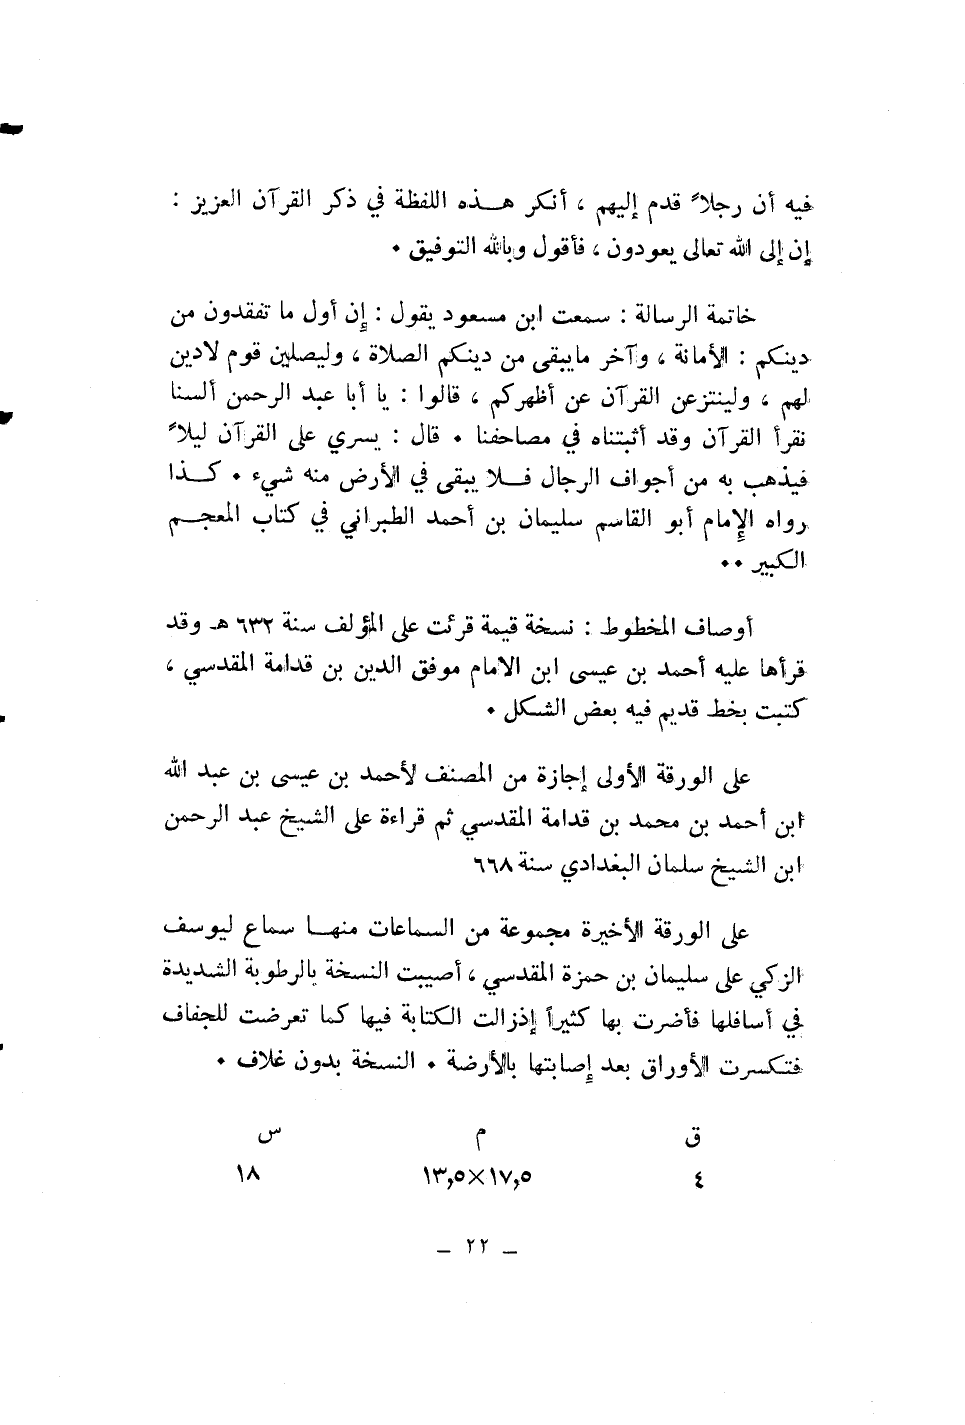 فيه أن رجلاً قدم إليهم ، أنكر هـــذه اللفظة في ذكر القرآن العزيز :
إن إلى الله تعالى يعودون ، فأقول وبالله التوفيق .
خاتمة الرسالة : سمعت ابن مسعود يقول : إن أول ما تفقدون من
دينكم : الأمانة ، وآخر مايبقى من دينكم الصلاة ، وليصلين قوم لادين
لهم ، ولينتزعن القرآن عن أظهركم ، قالوا : يا أبا عبد الرحمن ألسنا
نقرأ القرآن وقد أثبتناه في مصاحفنا . قال : يسري على القرآن ليلاً
فيذهب به من أجواف الرجال فـــلا يبقى في الأرض منه شيء . كـــذا
رواه الإمام أبو القاسم سليمان بن أحمد الطبراني في كتاب المعجـــم
الكبير ..
أوصاف المخطوط : نسخة قيمة قرئت على المؤلف سنة ٦٣٢ هـ وقد
قرأها عليه أحمد بن عيسى ابن الامام موفق الدين بن قدامة المقدسي ،
كتبت بخط قديم فيه بعض الشكل .
على الورقة الأولى إجازة من المصنف لأحمد بن عيسى بن عبد الله
ابن أحمد بن محمد بن قدامة المقدسي ثم قراءة على الشيخ عبد الرحمن
ابن الشيخ سلمان البغدادي سنة ٦٦٨
على الورقة الأخيرة مجموعة من السماعات منهـــا سماع ليوسف
الزكي على سليمان بن حمزة المقدسي ، أصيبت النسخة بالرطوبة الشديدة
في أسافلها فأضرت بها كثيراً إذزالت الكتابة فيها كما تعرضت للجفاف
فتكسرت الأوراق بعد إصابتها بالأرضة . النسخة بدون غلاف .
ق م س
٤ ١٧,٥×١٣,٥ ١٨
ـ ٢٢ ـ